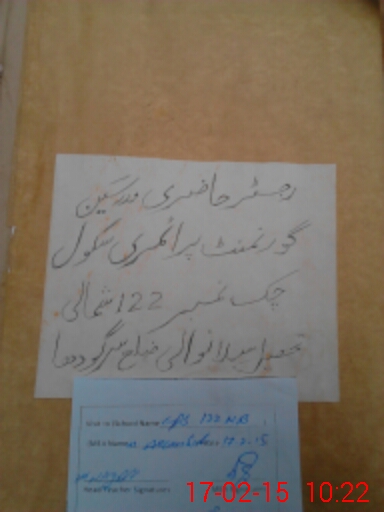 رجسٹر حاضری مدرسین
گورنمنٹ پرائمری سکول
چک نمبر 122 شمالی
تحصیل سیلانوالی ضلع سرگودھا
Visit to School Name GPS 122 NB
17-2-15
Head/Teacher Signature
17-02-15 10:22